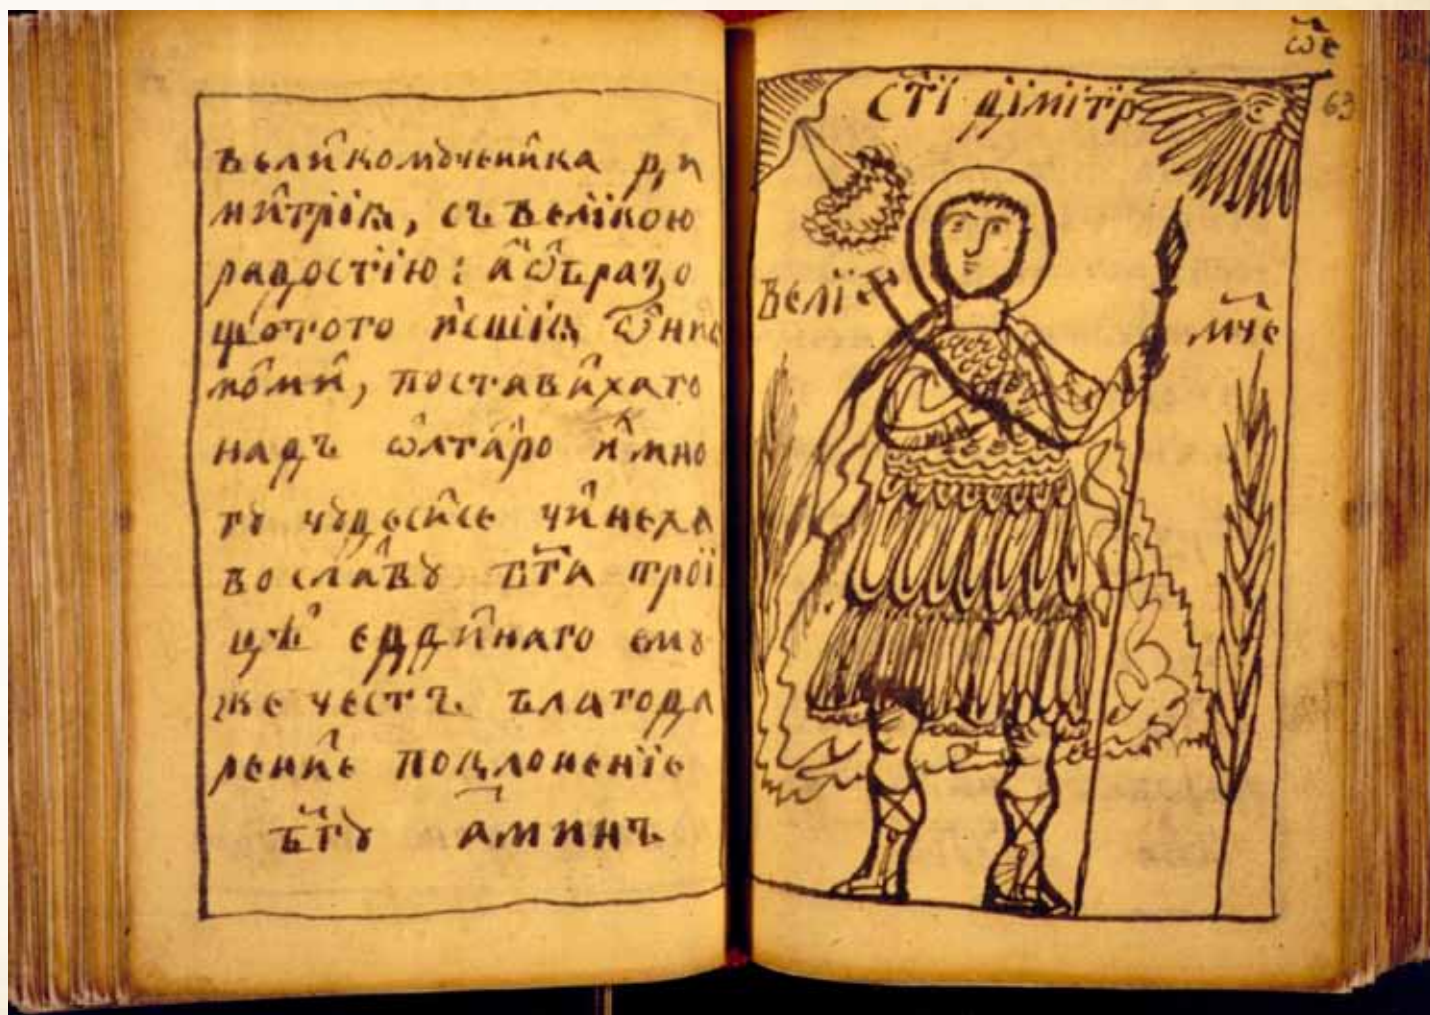 вели҄комꙋчени҄ка ди
ми҄трїѧ, съ велїкою
радостїю : а҆ѡ҆бразо
щотого и҆сшїѧ ѿни
ко҄ми҄, поставиха го
надъ ѡлта҄ро и҆ мно
гꙋ чꙋдеси҄се чи҄неха
во сла҄вꙋ бг҃а трої
цѣ еддинаго емꙋ
же честъ благода
рени҄е поцлоненїе
бг҃ꙋ а҆минъ
ѡ҃е
63
ст҃ї дїмітръ
велїе
мч҃е